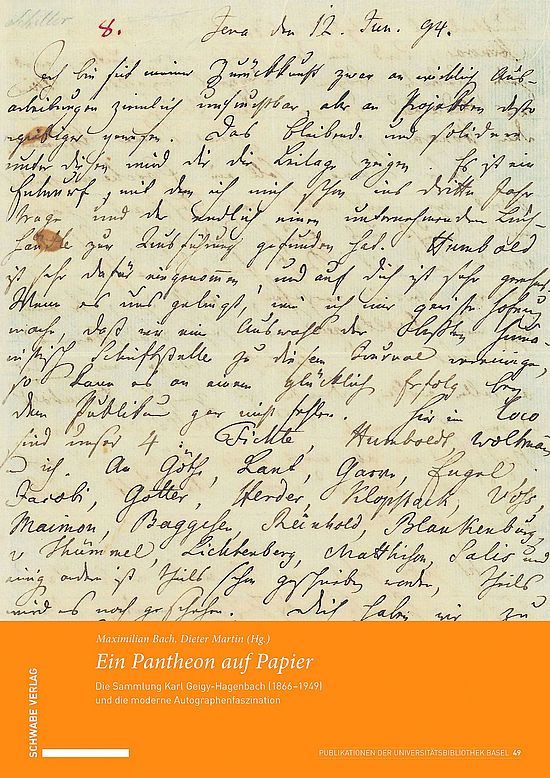 Schiller
8. Jena den 12. Jun. 94.
Ich bin seit meiner Zurückkunft zwar an wirklich Aus-
arbeitungen ziemlich unfruchtbar, aber an Projekten desto
ergiebiger gewesen. Das bleibende und solidere
unter diesen wird dir die Beilage zeigen. Es ist ein
Entwurf, mit dem ich mich schon ins dritte Jahr
trage und der endlich einen unternehmenden Buch-
händler zur Ausführung gefunden hat. Humbold
ist sehr dafür eingenommen, und auf dich ist sehr
Wenn es uns gelingt, wie ich mir gewisse Hofnung
mache, daß wir eine Auswahl der besten huma-
nistisch Schriftsteller zu diesem Journal vereinige,
so kann es an einem glücklich Erfolg bey
dem Publikum gar nicht fehlen. Hier in loco
sind unser 4: Fichte, Humboldt, Woltmann
ich. An Göthe, Kant, Garve, Engel
Jacobi, Gotter, Herder, Klopstock, Voss,
Maimon, Baggesen Reinhold, Blankenburg,
v Thümmel Lichtenberg, Matthison, Salis und
einig andere ist theils schon geschrieben worden, theils
wird es noch geschehen. Dich haben wir zu
Maximilian Bach, Dieter Martin (Hg.)
Ein Pantheon auf Papier
Die Sammlung Karl Geigy-Hagenbach (1866–1949)
und die moderne Autographenfaszination
SCHWABE VERLAG
PUBLIKATIONEN DER UNIVERSITÄTSBIBLIOTHEK BASEL 49